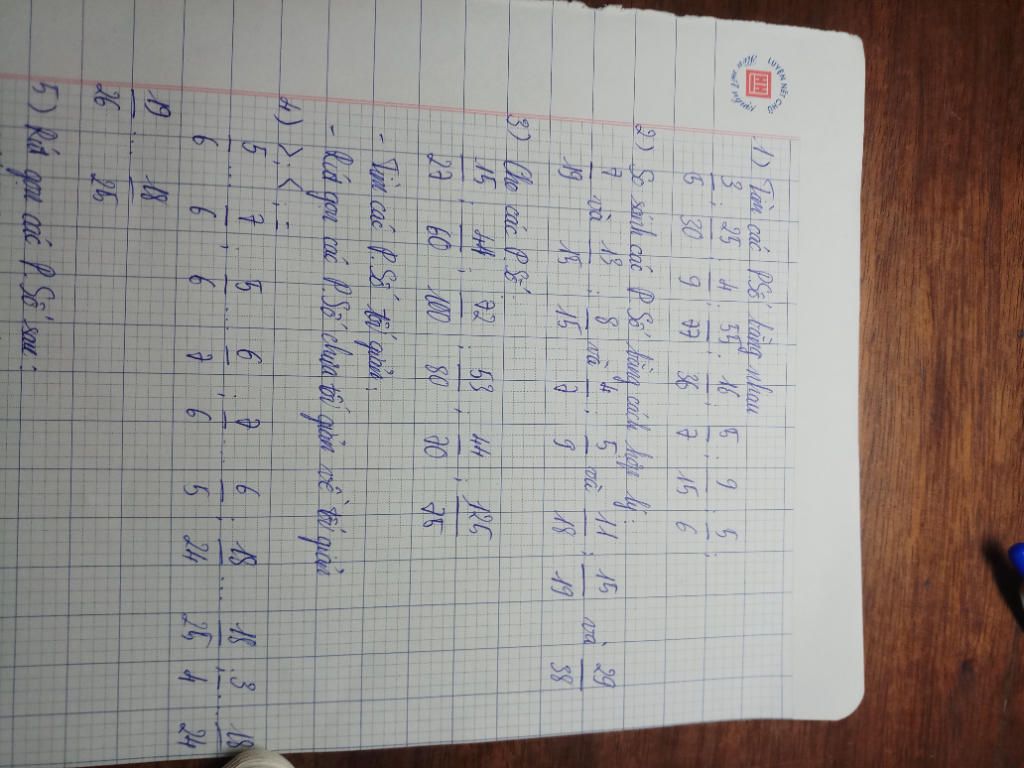 LUYỆN NÉT CHỮ
HH
Rèn nết người
1) Tìm các P.Số bằng nhau
3/5 ; 25/30 ; 4/9 ; 55/77 ; 16/36 ; 5/7 ; 9/15 ; 5/6 ;
2) So sánh các P.Số bằng cách hợp lý:
7/19 và 13/15 ; 8/15 và 4/7 ; 5/9 và 11/18 ; 15/19 và 29/38
3) Cho các P.Số:
15/27 ; 44/60 ; 72/100 ; 53/80 ; 44/70 ; 125/75
- Tìm các P.Số tối giản.
- Rút gọn các P.Số chưa tối giản về tối giản
4) >, <, =
5/6 ... 7/6 ; 5/6 ... 6/7 ; 7/6 ... 6/5 ; 18/24 ... 18/25 ; 3/4 ... 18/24
19/26 ... 18/25
5) Rút gọn các P.Số sau: